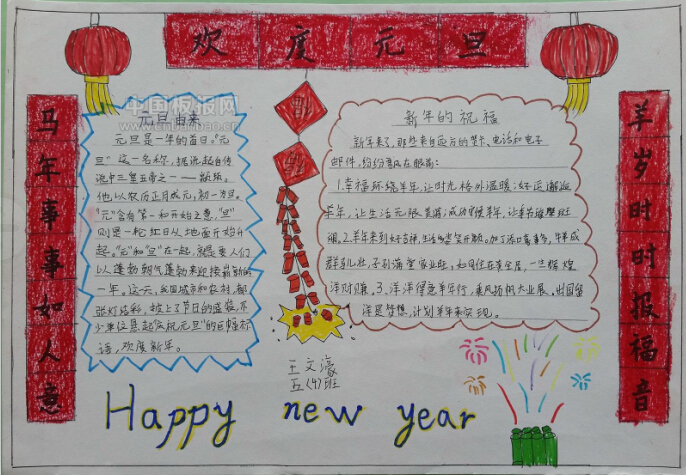 欢度元旦
马年事事如人意
羊岁时时报福音
中国板报网
元旦由来
元旦是一年的首日。"元
旦"这一名称，据说起自传
说中三皇五帝之一——颛顼。
他以农历正月为元，初一为旦。
"元"含有第一和开始之意，"旦"
则是一轮红日从地面开始升
起。"元"和"旦"在一起，就是要人们
以蓬勃朝气蓬勃来迎接崭新的
一年。这天，我国城市和农村，都
张灯结彩，披上了节日的盛装，不
少单位悬起庆祝元旦"的巨幅标
语，欢度新年。
新年的祝福
新年来了，那些来自远方的贺卡、电话和电子
邮件，纷纷飘在眼前：
1.幸福环绕羊年，让时光格外温暖；好运邂逅
羊年，让生活无限美丽；成功守候羊年，让幸
2.羊来到好吉祥，生活
群乱跑，子孙满堂家业旺，
洋财赚。3.洋洋得意羊年行，乘风扬帆大业展，出国留
洋是梦想，计划羊年来实现。
王文濠
五(4)班
Happy new year